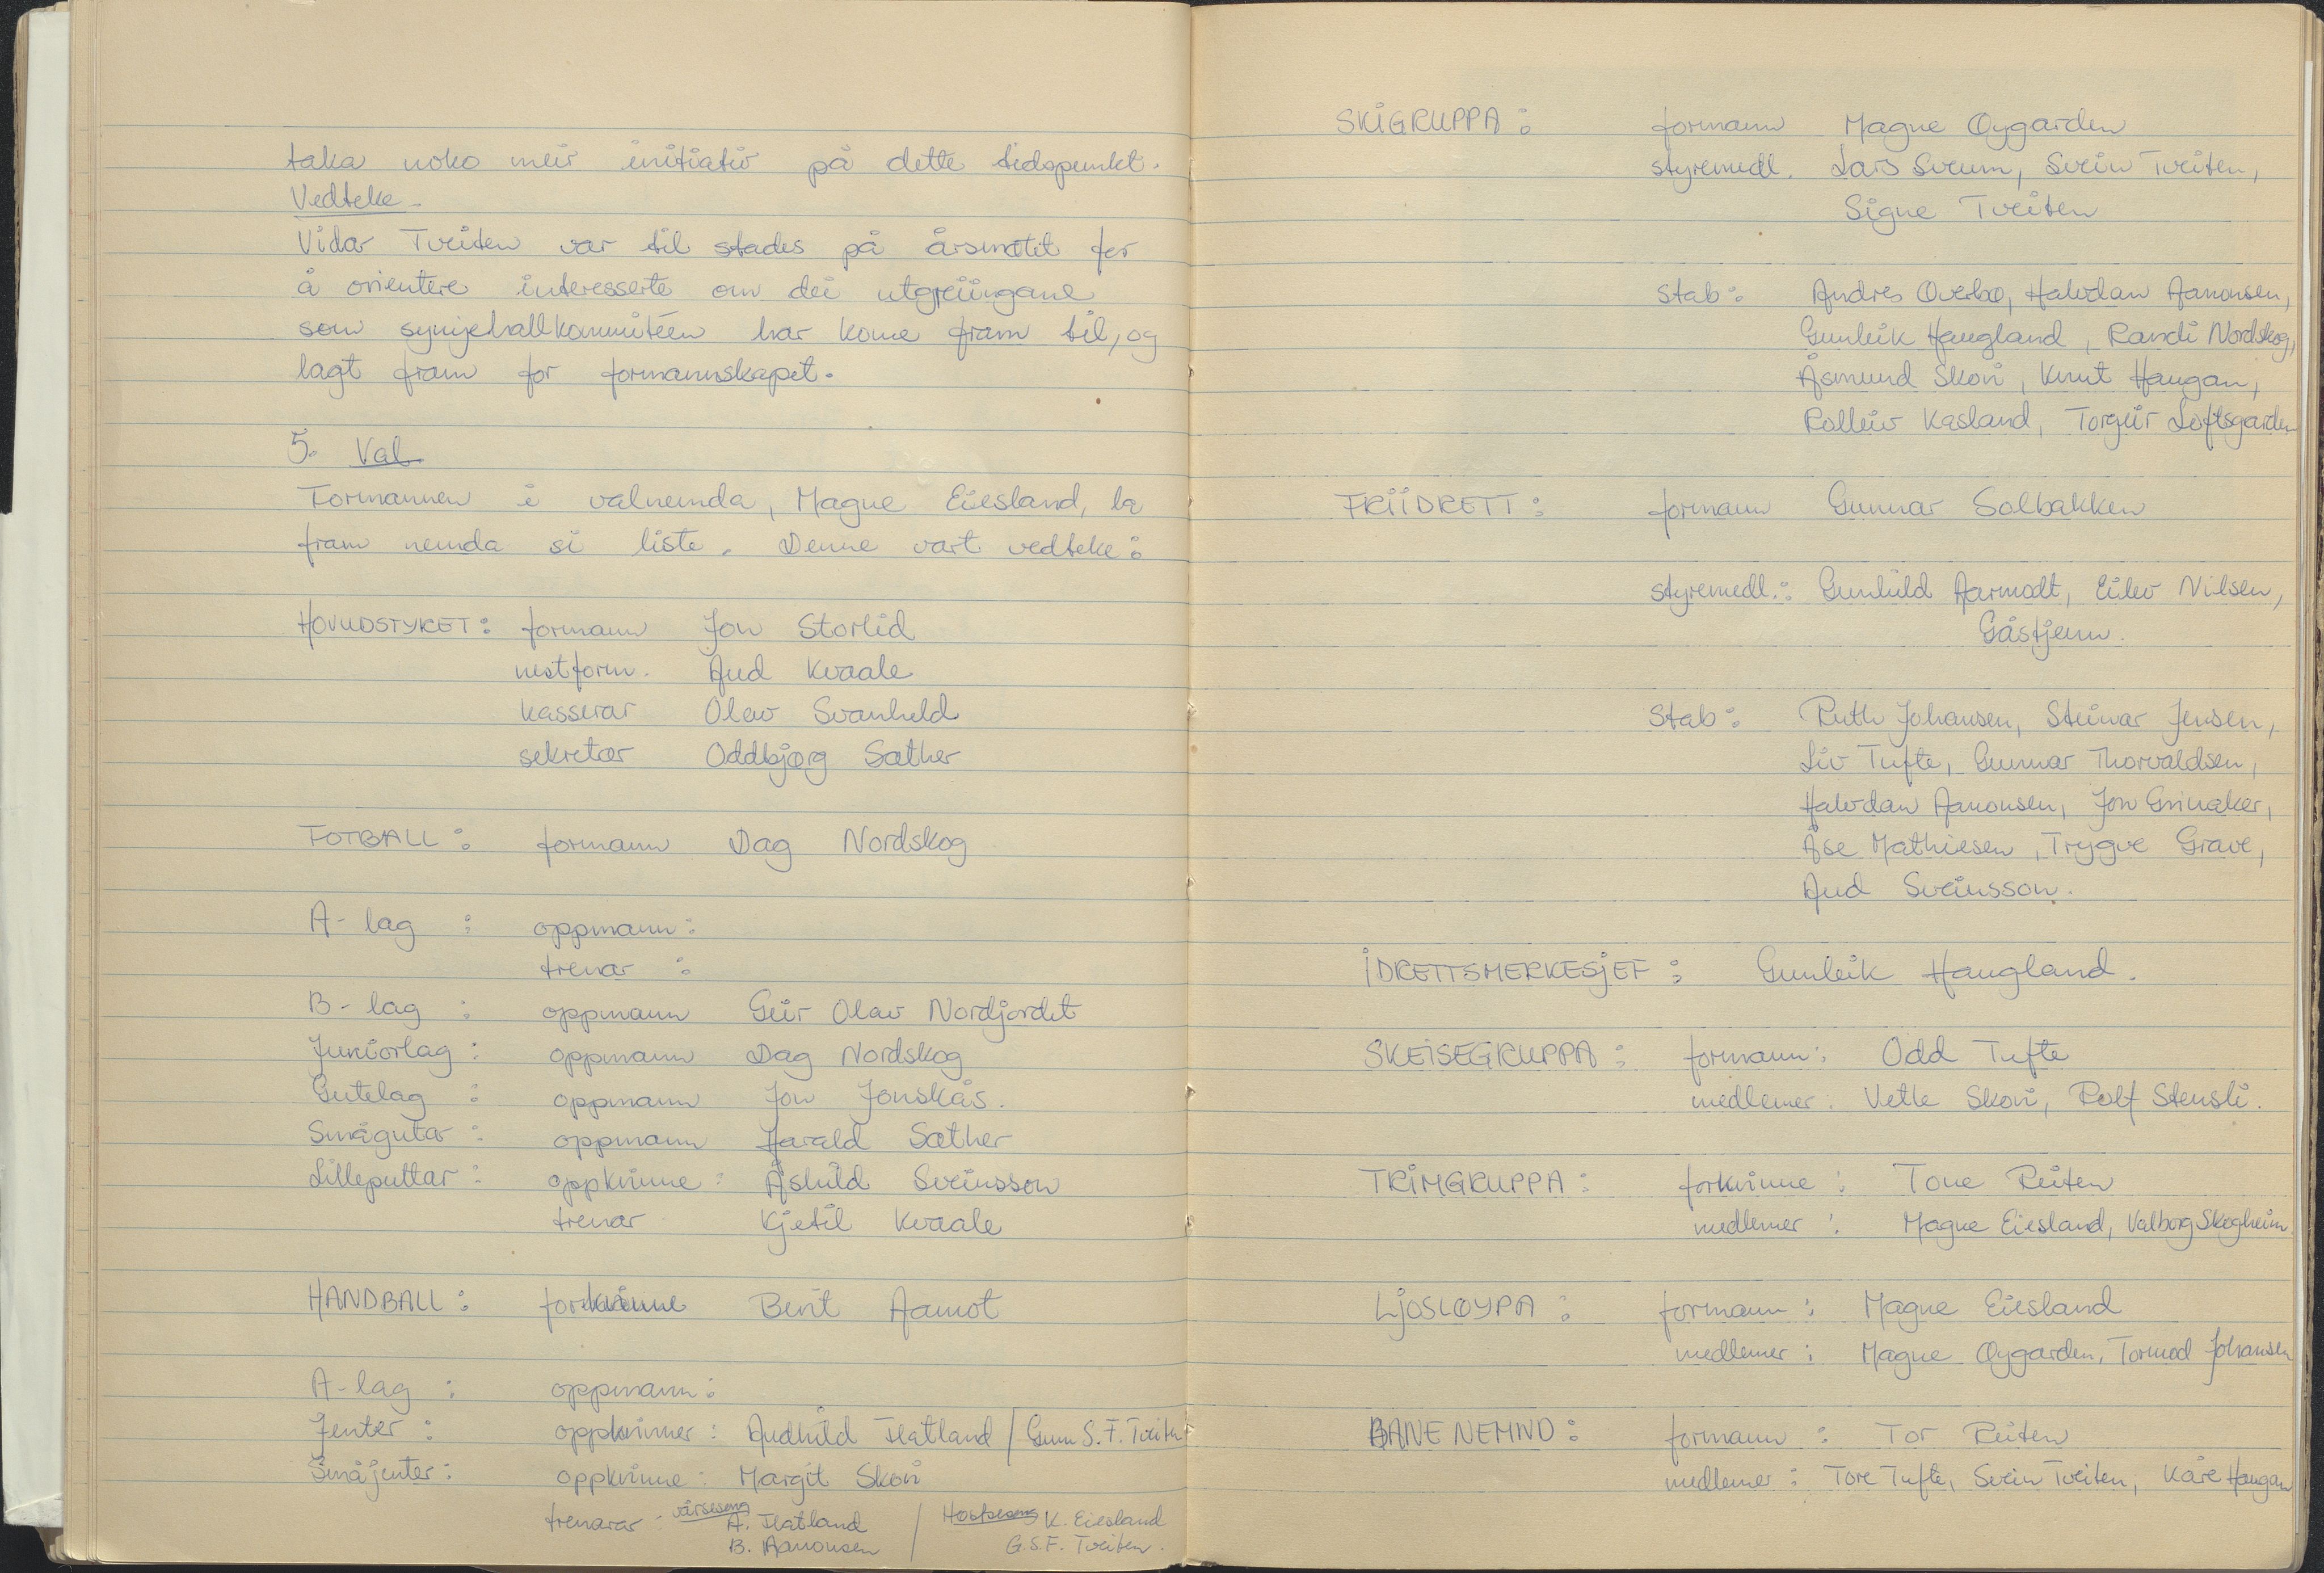 taka noko meir initiativ på dette tidspunkt.
Vedteke.
Vidar Tveiten var til stades på årsmøtet for
å orientere interesserte om dei utgreiingane
som symjehallkommitéen har kome fram til, og
lagt fram for formannskapet.
5. Val
Formannen i valnemnda, Magne Eiesland, la
fram nemda si liste. Denne vart vedteke:
HOVUDSTYRET: formann Jon Storlid
nestform. Aud Kvaale
kasserar Olav Svanheld
sekretær Oddbjørg Sæther
FOTBALL: formann Dag Nordskog
A-lag : oppmann:
trenar :
B-lag : oppmann Geir Olav Nordjordet
Juniorlag: oppmann Dag Nordskog
Gutelag : oppmann Jon Jonskås.
Smågutar : oppmann Harald Sæther
Lilleputtar: oppkvinne: Åshild Sveinsson
trenar Kjetil Kvaale
HANDBALL: forkvinne Berit Aamot
A-lag : oppmann:
Jenter : oppkvinner: Audhild Flatland / Gunn S.F. Tveiten
Småjenter: oppkvinne: Margit Skori
trenarar: vårsesong A. Flatland / Høstsesong K. Eiesland
B. Aanonsen G.S.F. Tveiten.
SKIGRUPPA: formann Magne Øygarden
styremedl. Lars Sveum, Svein Tveiten,
Signe Tveiten
Stab: Andres Overbø, Halvdan Aanonsen,
Gunleik Haugland, Randi Nordskog,
Åsmund Skori, Knut Haugan,
Rolleiv Kasland, Torgeir Loftsgarden
FRIIDRETT: formann Gunnar Solbakken
styremedl.: Gunhild Aarmodt, Eilev Nilsen,
Gåstjenn.
Stab: Ruth Johansen, Steinar Jensen,
Liv Tufte, Gunnar Thorvaldsen,
Halvdan Aanonsen, Jon Grinaker,
Åse Mathiesen, Trygve Grave,
Aud Sveinsson.
IDRETTSMERKESJEF: Gunleik Haugland.
SKEISEGRUPPA: formann: Odd Tufte
medlemer: Vetle Skori, Rolf Stensli.
TRIMGRUPPA: forkvinne: Tone Reiten
medlemer: Magne Eiesland, Valborg Skogheim
LJOSLØYPA: formann: Magne Eiesland
medlemer: Magne Øygarden, Tormod Johansen
BANENEMND: formann: Tor Reiten
medlemer: Tore Tufte, Svein Tveiten, Kåre Haugan